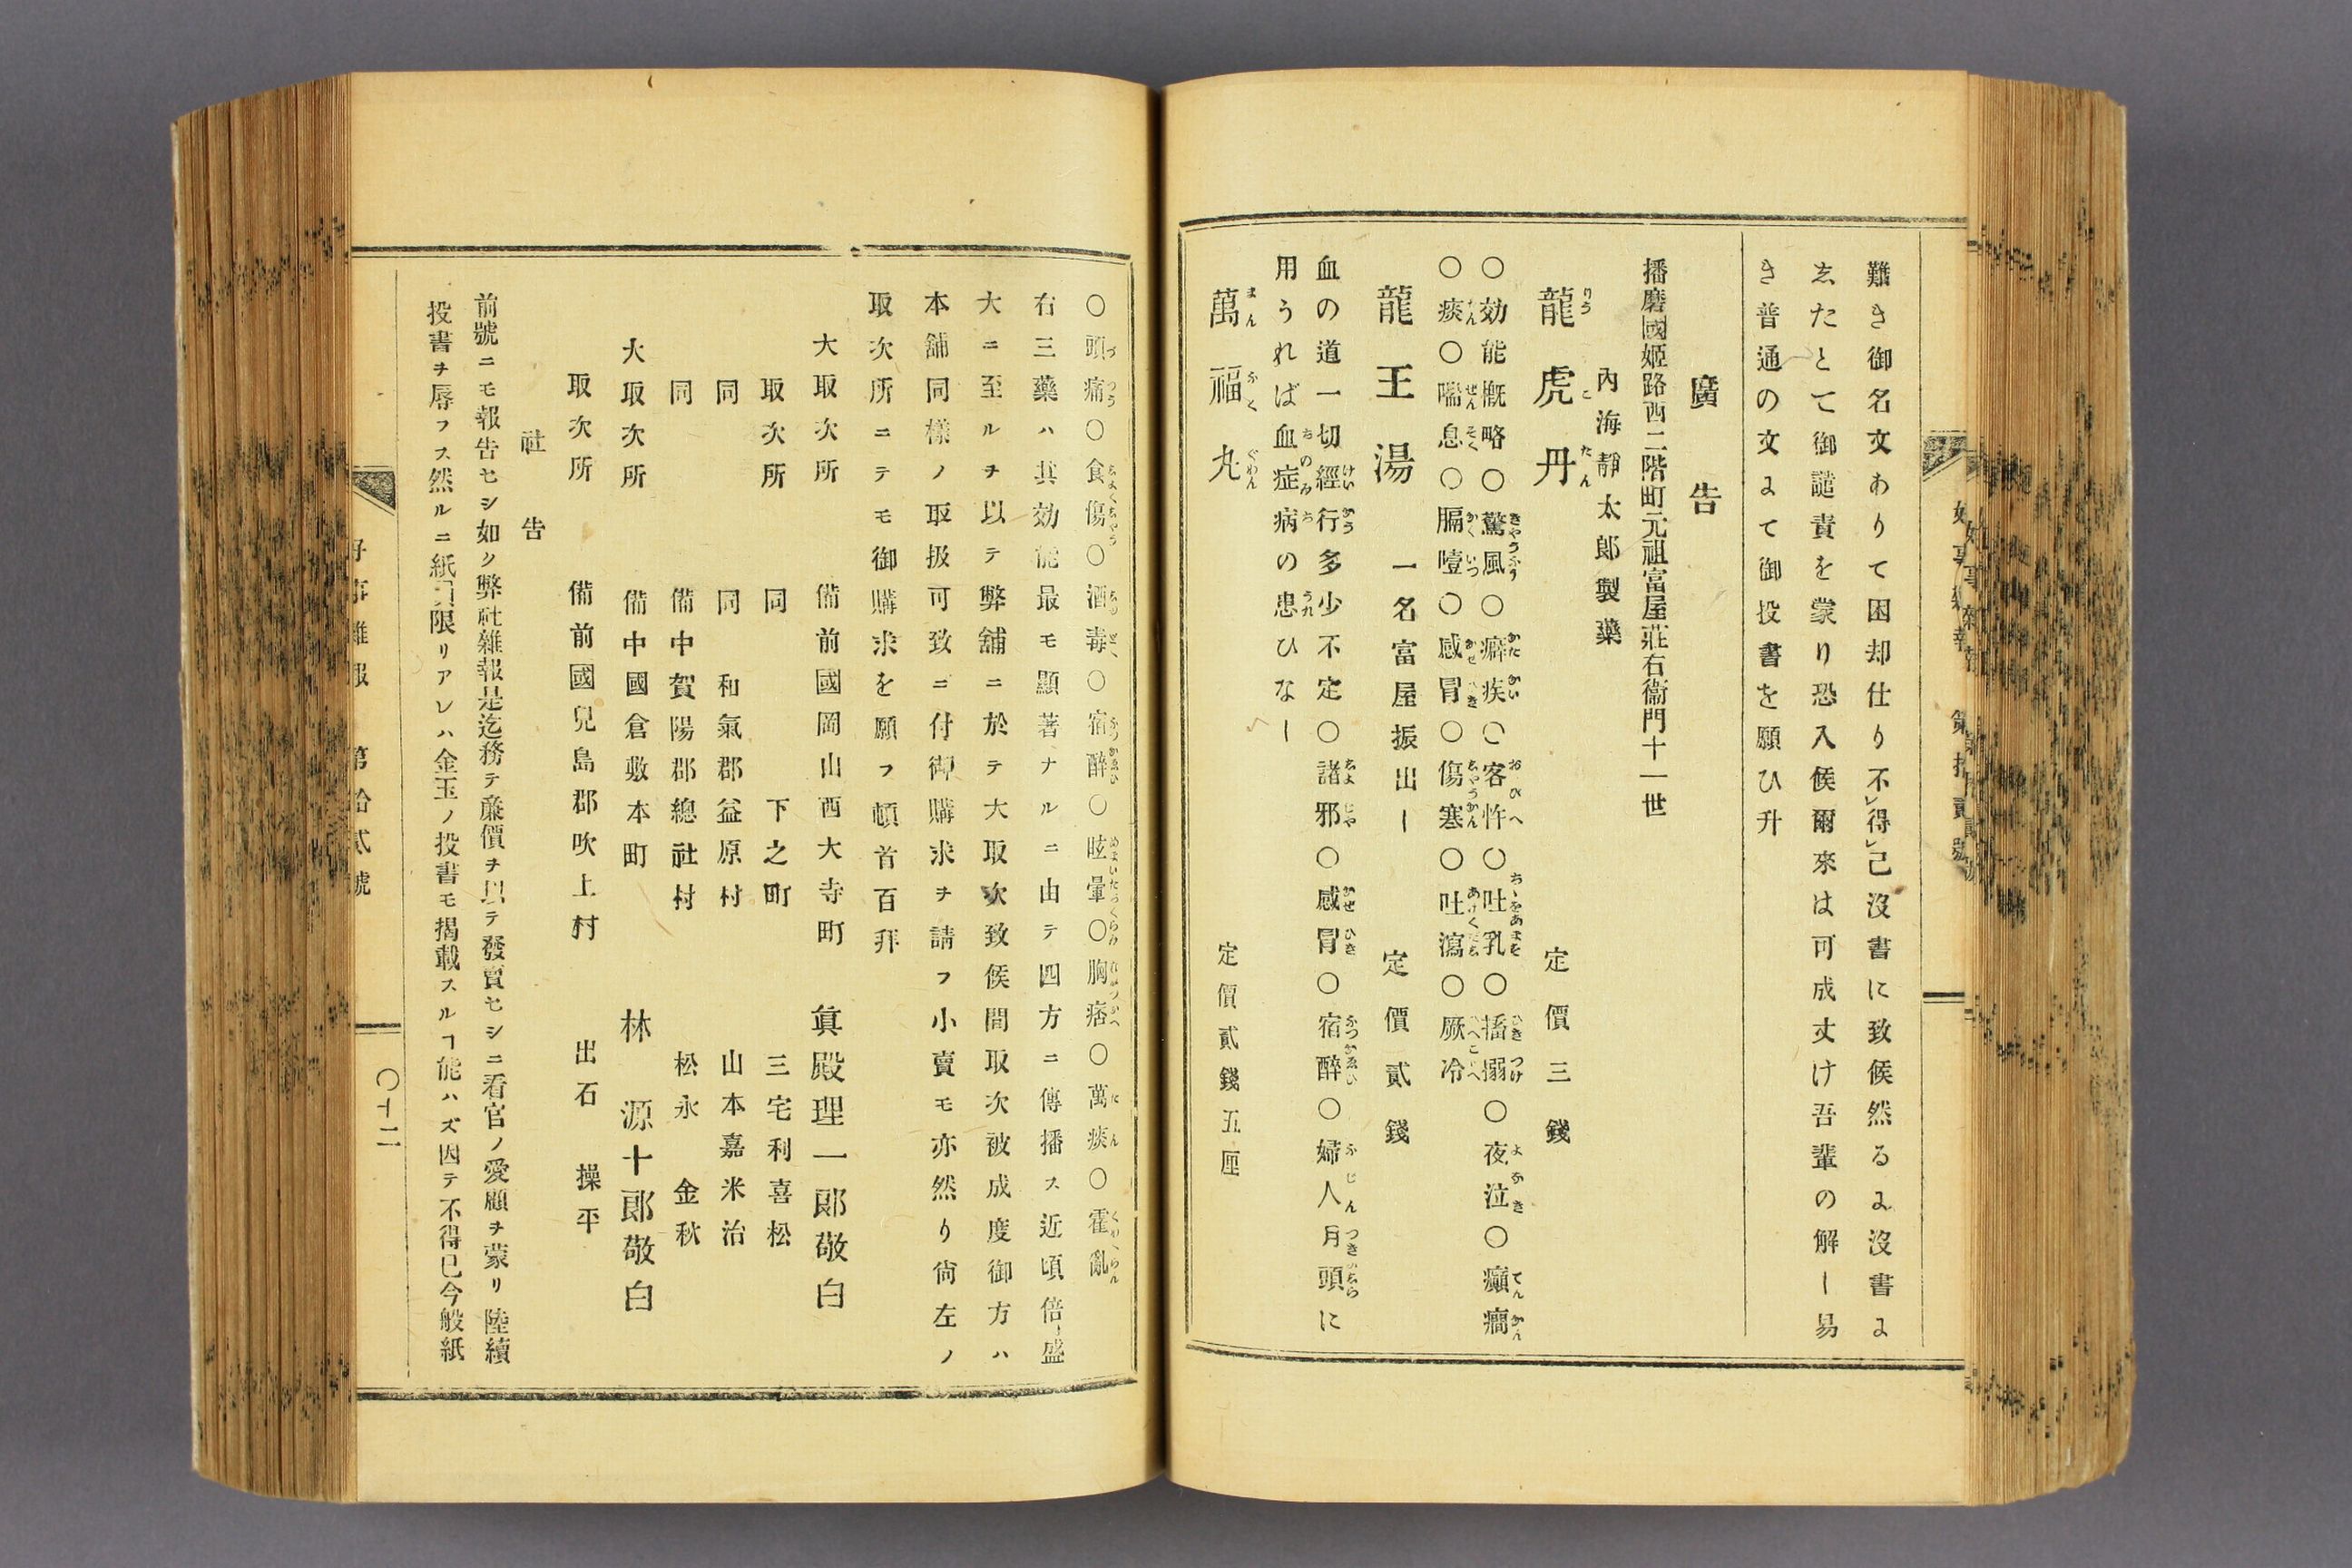 難き御名文ありて困却仕り不レ得レ已沒書に致候然るょ沒書ょ
ゑたとて御譴責を蒙り恐入候爾來は可成丈け吾輩の解し易
き普通の文ょて御投書を願ひ升
廣告
播磨國姬路西二階町元祖富屋莊右衞門十一世
內海靜太郎製藥
龍虎丹 定價三錢
〇効能概略〇驚風〇癖疾〇客忤〇吐乳〇搐搦〇夜泣〇癲癇
〇痰〇喘息〇膈噎〇感冒〇傷寒〇吐瀉〇厥冷
龍王湯 一名富屋振出し 定價貳錢
血の道一切經行多少不定〇諸邪〇感冒〇宿醉〇婦人月頭に
用うれば血症病の患ひなし
萬福丸 定價貳錢五厘
〇頭痛〇食傷〇酒毒〇宿醉〇眩暈〇胸痞〇萬痰〇霍亂
右三藥ハ其効能最モ顯著ナルニ由テ四方ニ傳播ス近頃倍々盛
大ニ至ルヲ以テ弊舖ニ於テ大取次致候間取次被成度御方ハ
本舖同樣ノ取扱可致ニ付御購求ヲ請フ小賣モ亦然り尙左ノ
取次所ニテモ御購求を願フ頓首百拜
大取次所 備前國岡山西大寺町 眞殿理一郞敬白
取次所 同 下之町 三宅利喜松
同 同 和氣郡益原村 山本嘉米治
同 備中賀陽郡總社村 松永金秋
大取次所 備中國倉敷本町 林源十郞敬白
取次所 備前國兒島郡吹上村 出石操平
社告
前號ニモ報告セシ如ク弊社雜報是迄務テ廉價ヲ以テ發賣セシニ看官ノ愛顧ヲ蒙リ陸續
投書ヲ辱フス然ルニ紙員限リアレハ金玉ノ投書モ揭載スルヿ能ハズ因テ不得已今般紙
好事雜報 第拾貳號
〇十二